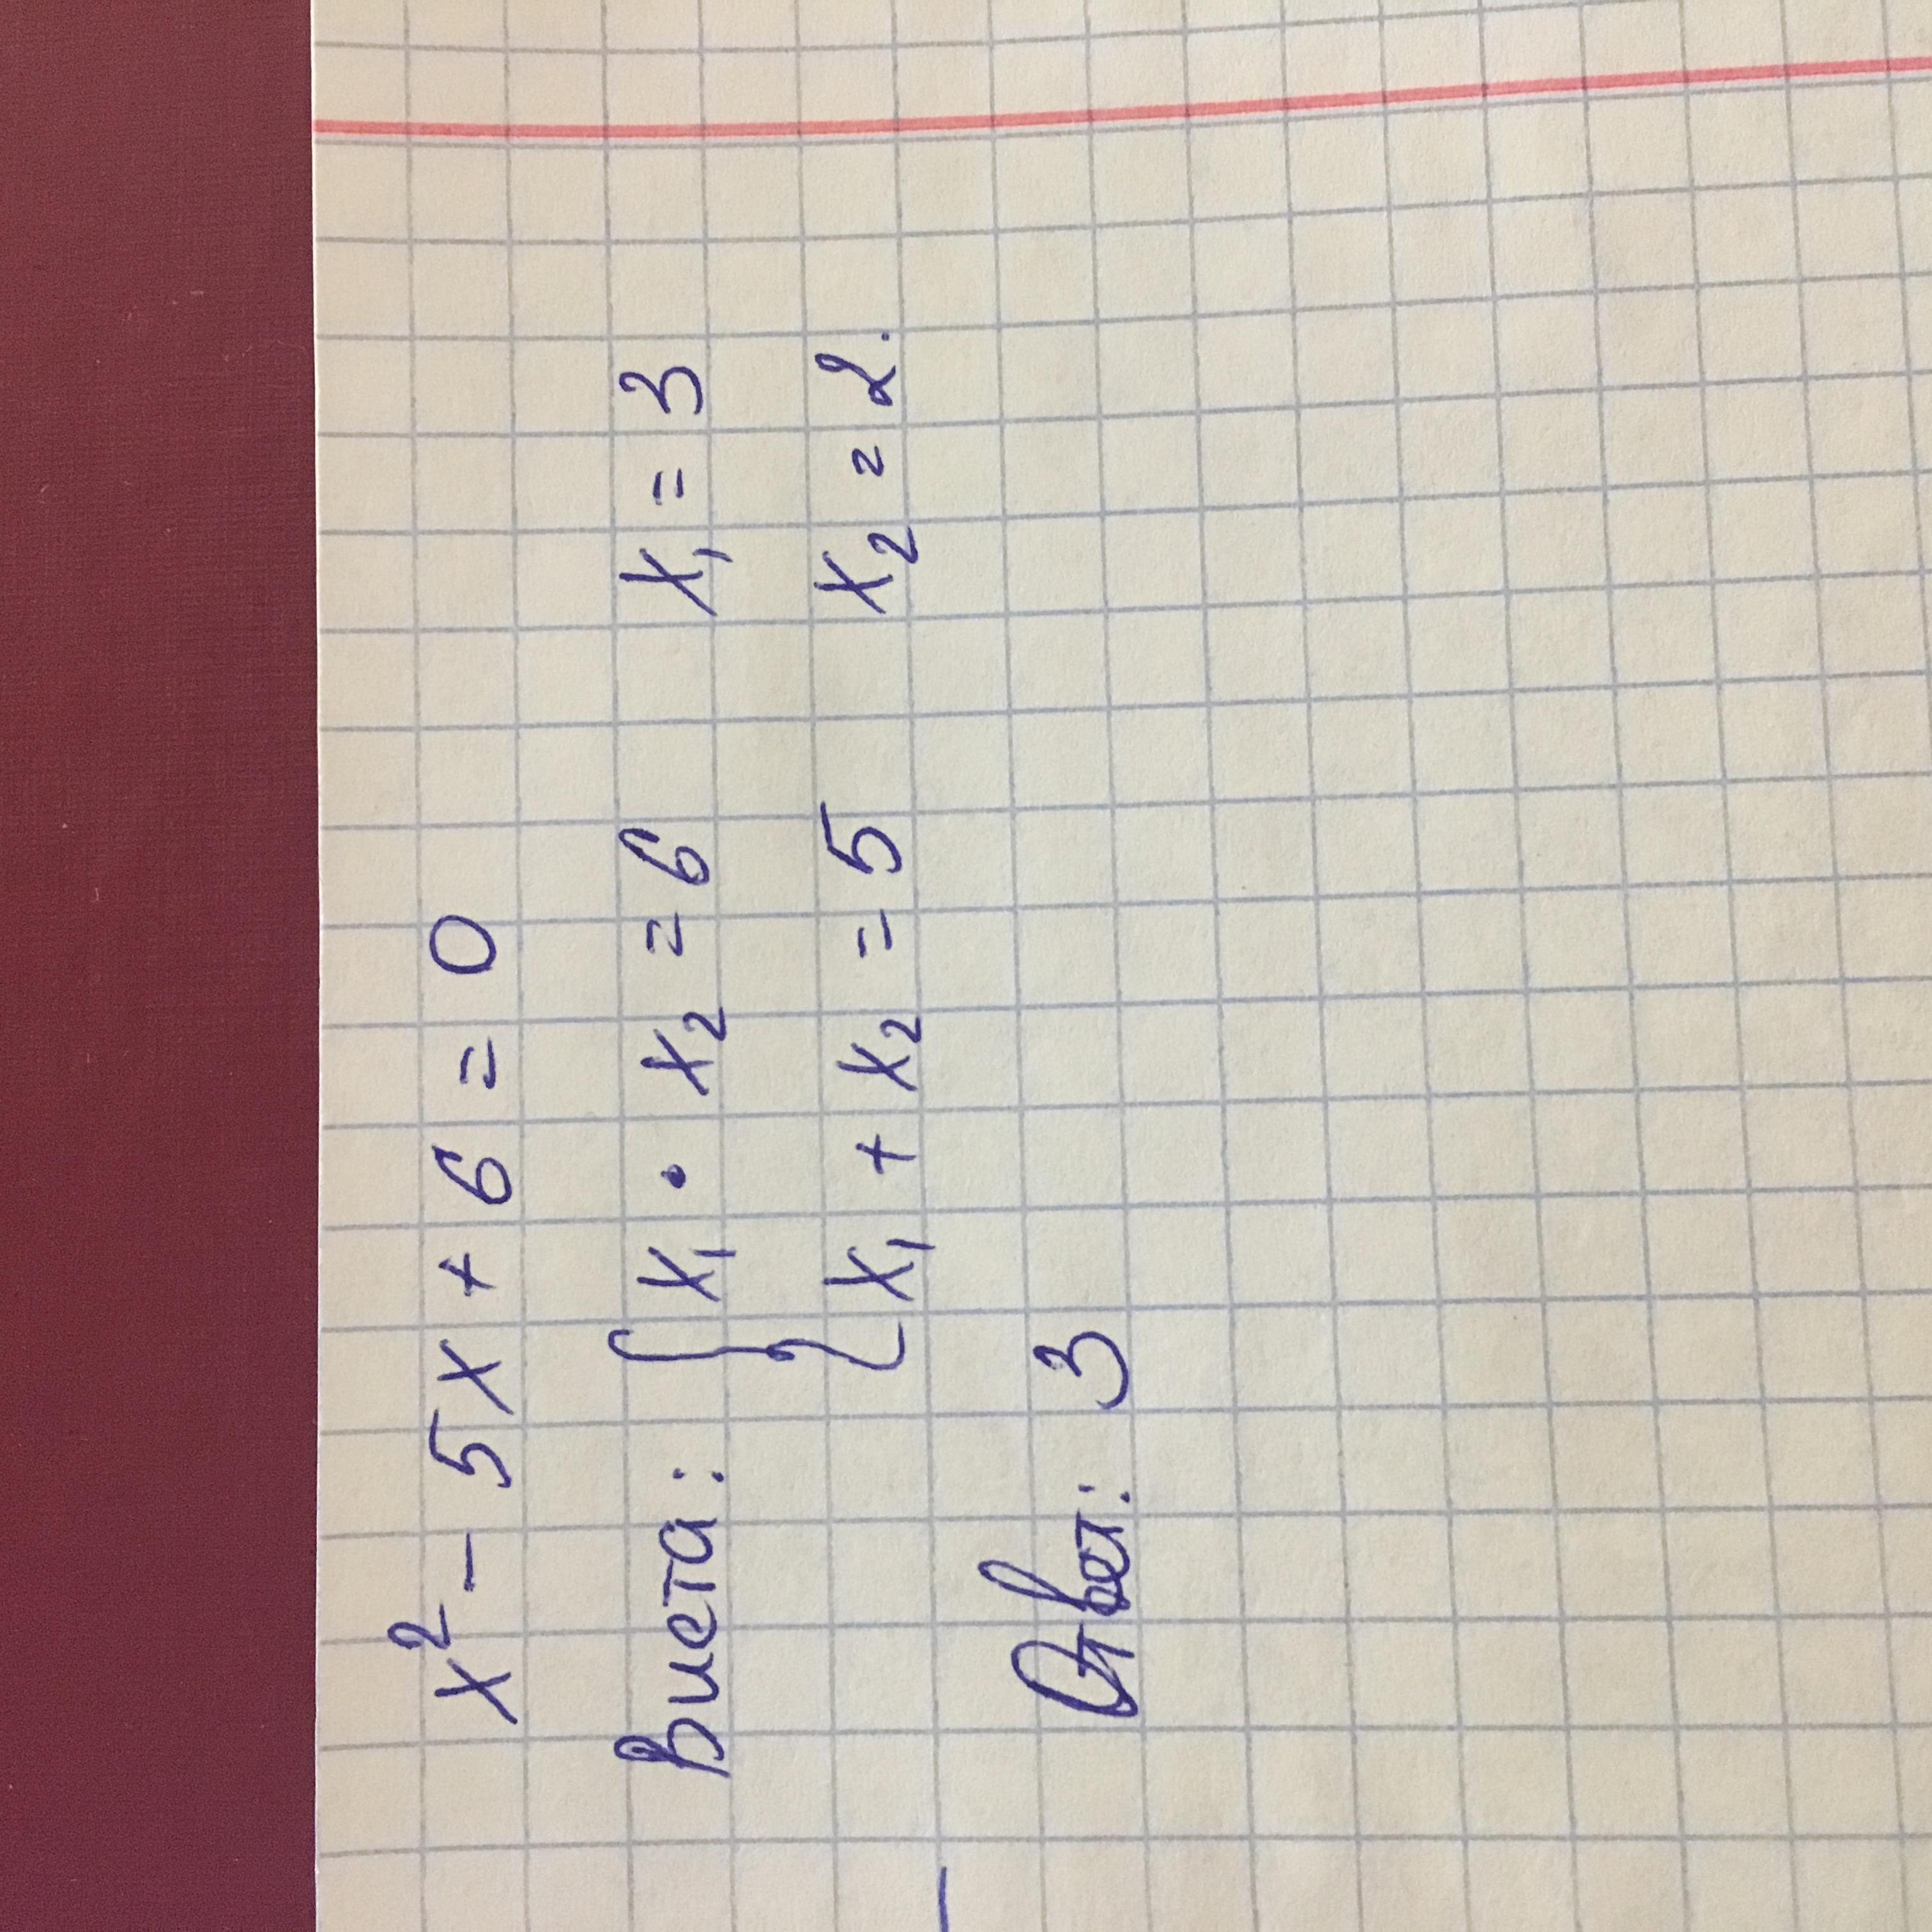 x² - 5x + 6 = 0
Виета: { x₁ • x₂ = 6 x₁ = 3
x₁ + x₂ = 5 x₂ = 2.
Ответ: 3